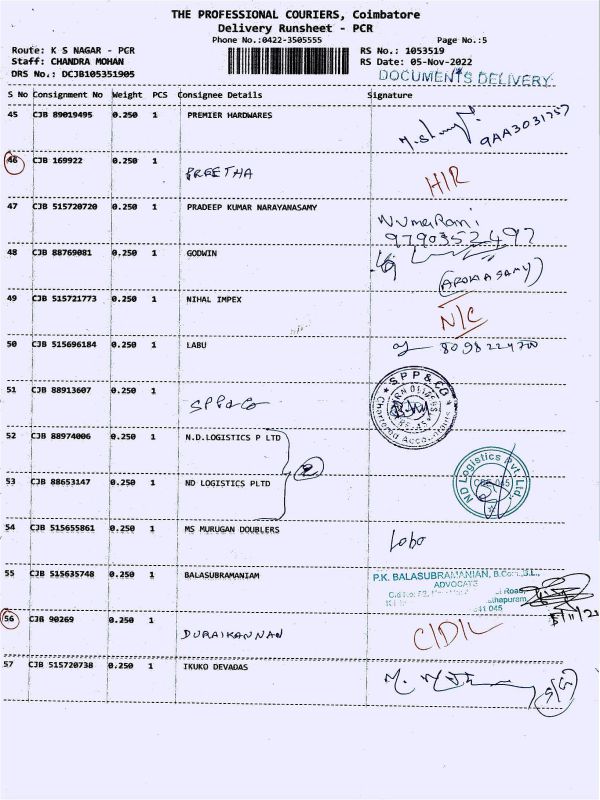 THE PROFESSIONAL COURIERS, Coimbatore
Delivery Runsheet - PCR
Phone No.:0422-3505555
Page No.:5
Route: K S NAGAR - PCR
RS No.: 1053519
Staff: CHANDRA MOHAN
RS Date: 05-Nov-2022
DRS No.: DCJB105351905
DOCUMENTS DELIVERY
S No Consignment No Weight PCS Consignee Details Signature
45 CJB 89019495 0.250 1 PREMIER HARDWARES
46 CJB 169922 0.250 1 PREETHA HIR
47 CJB 515720720 0.250 1 PRADEEP KUMAR NARAYANASAMY
9790352497
48 CJB 88769081 0.250 1 GODWIN
(AROKIASAMY)
49 CJB 515721773 0.250 1 NIHAL IMPEX N/C
50 CJB 515696184 0.250 1 LABU
51 CJB 88913607 0.250 1 SPP&Co
SPP & CO
Chartered Accountants
52 CJB 88974006 0.250 1 N.D.LOGISTICS P LTD
2
53 CJB 88653147 0.250 1 ND LOGISTICS PLTD
ND Logistics Pvt. Ltd.
54 CJB 515655861 0.250 1 MS MURUGAN DOUBLERS
55 CJB 515635748 0.250 1 BALASUBRAMANIAM
P.K. BALASUBRAMANIAN,
ADVOCATE
56 CJB 90269 0.250 1 DURAIKANNAN
57 CJB 515720738 0.250 1 IKUKO DEVADAS